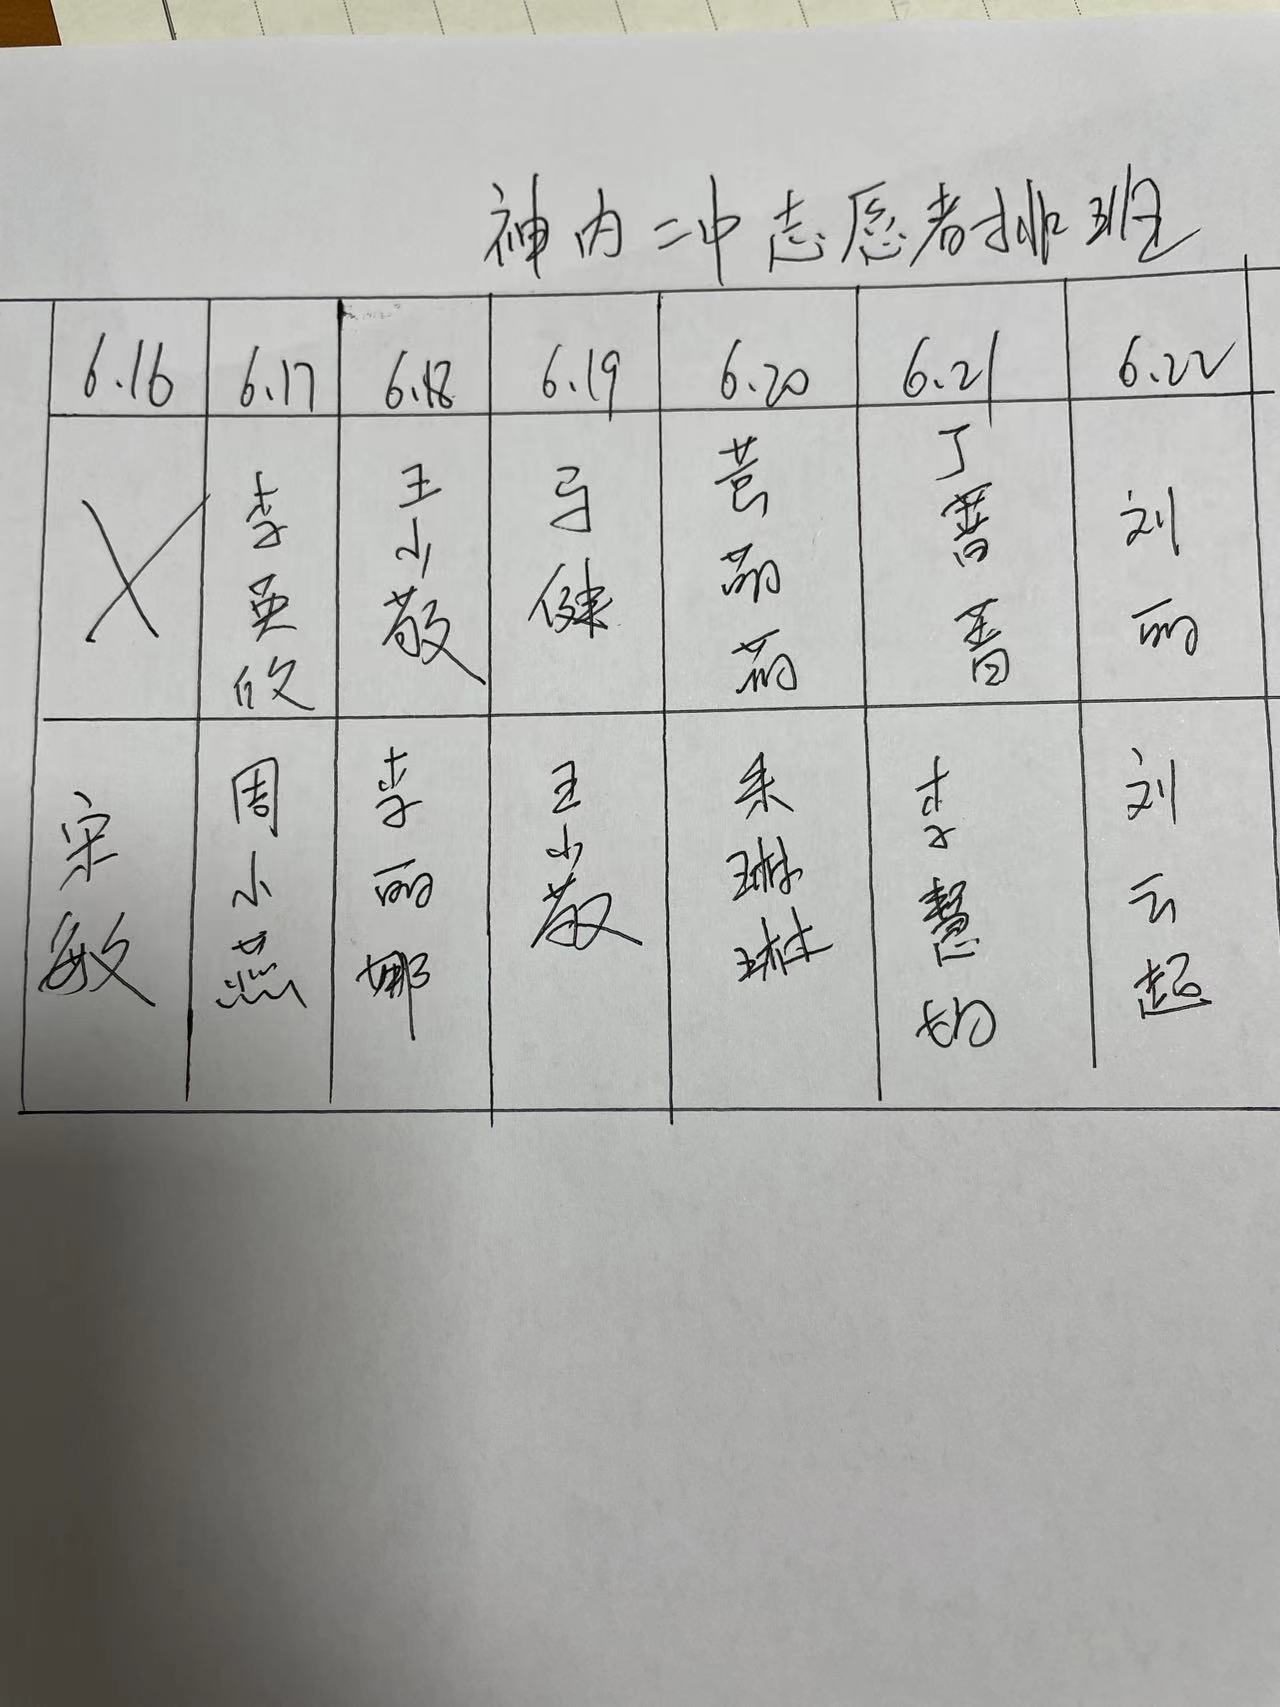 神内二中志愿者排班
6.16 6.17 6.18 6.19 6.20 6.21 6.22
X 李英欣 王小敬 马健 萌萌 丁蔷蔷 刘丽
宋敏 周小燕 李丽娜 王小敬 朱琳琳 李慧 刘云超